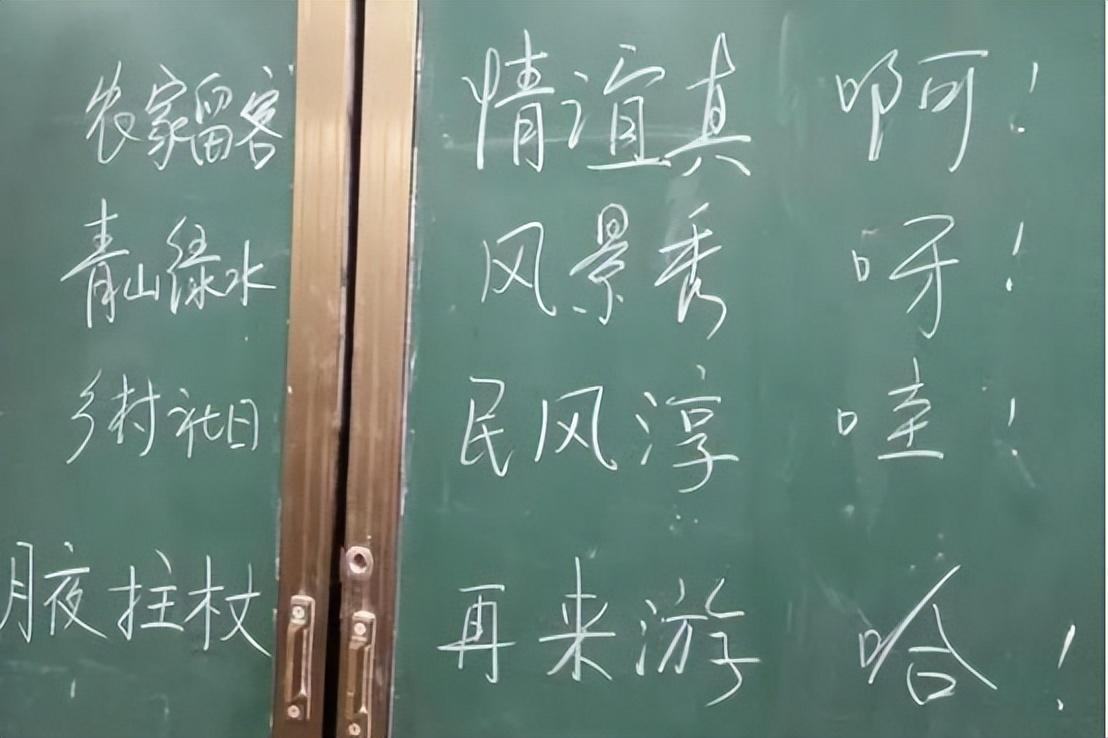 农家留客 情谊真 啊！
青山绿水 风景秀 呀！
乡村社日 民风淳 哇！
月夜拄杖 再来游 哈！